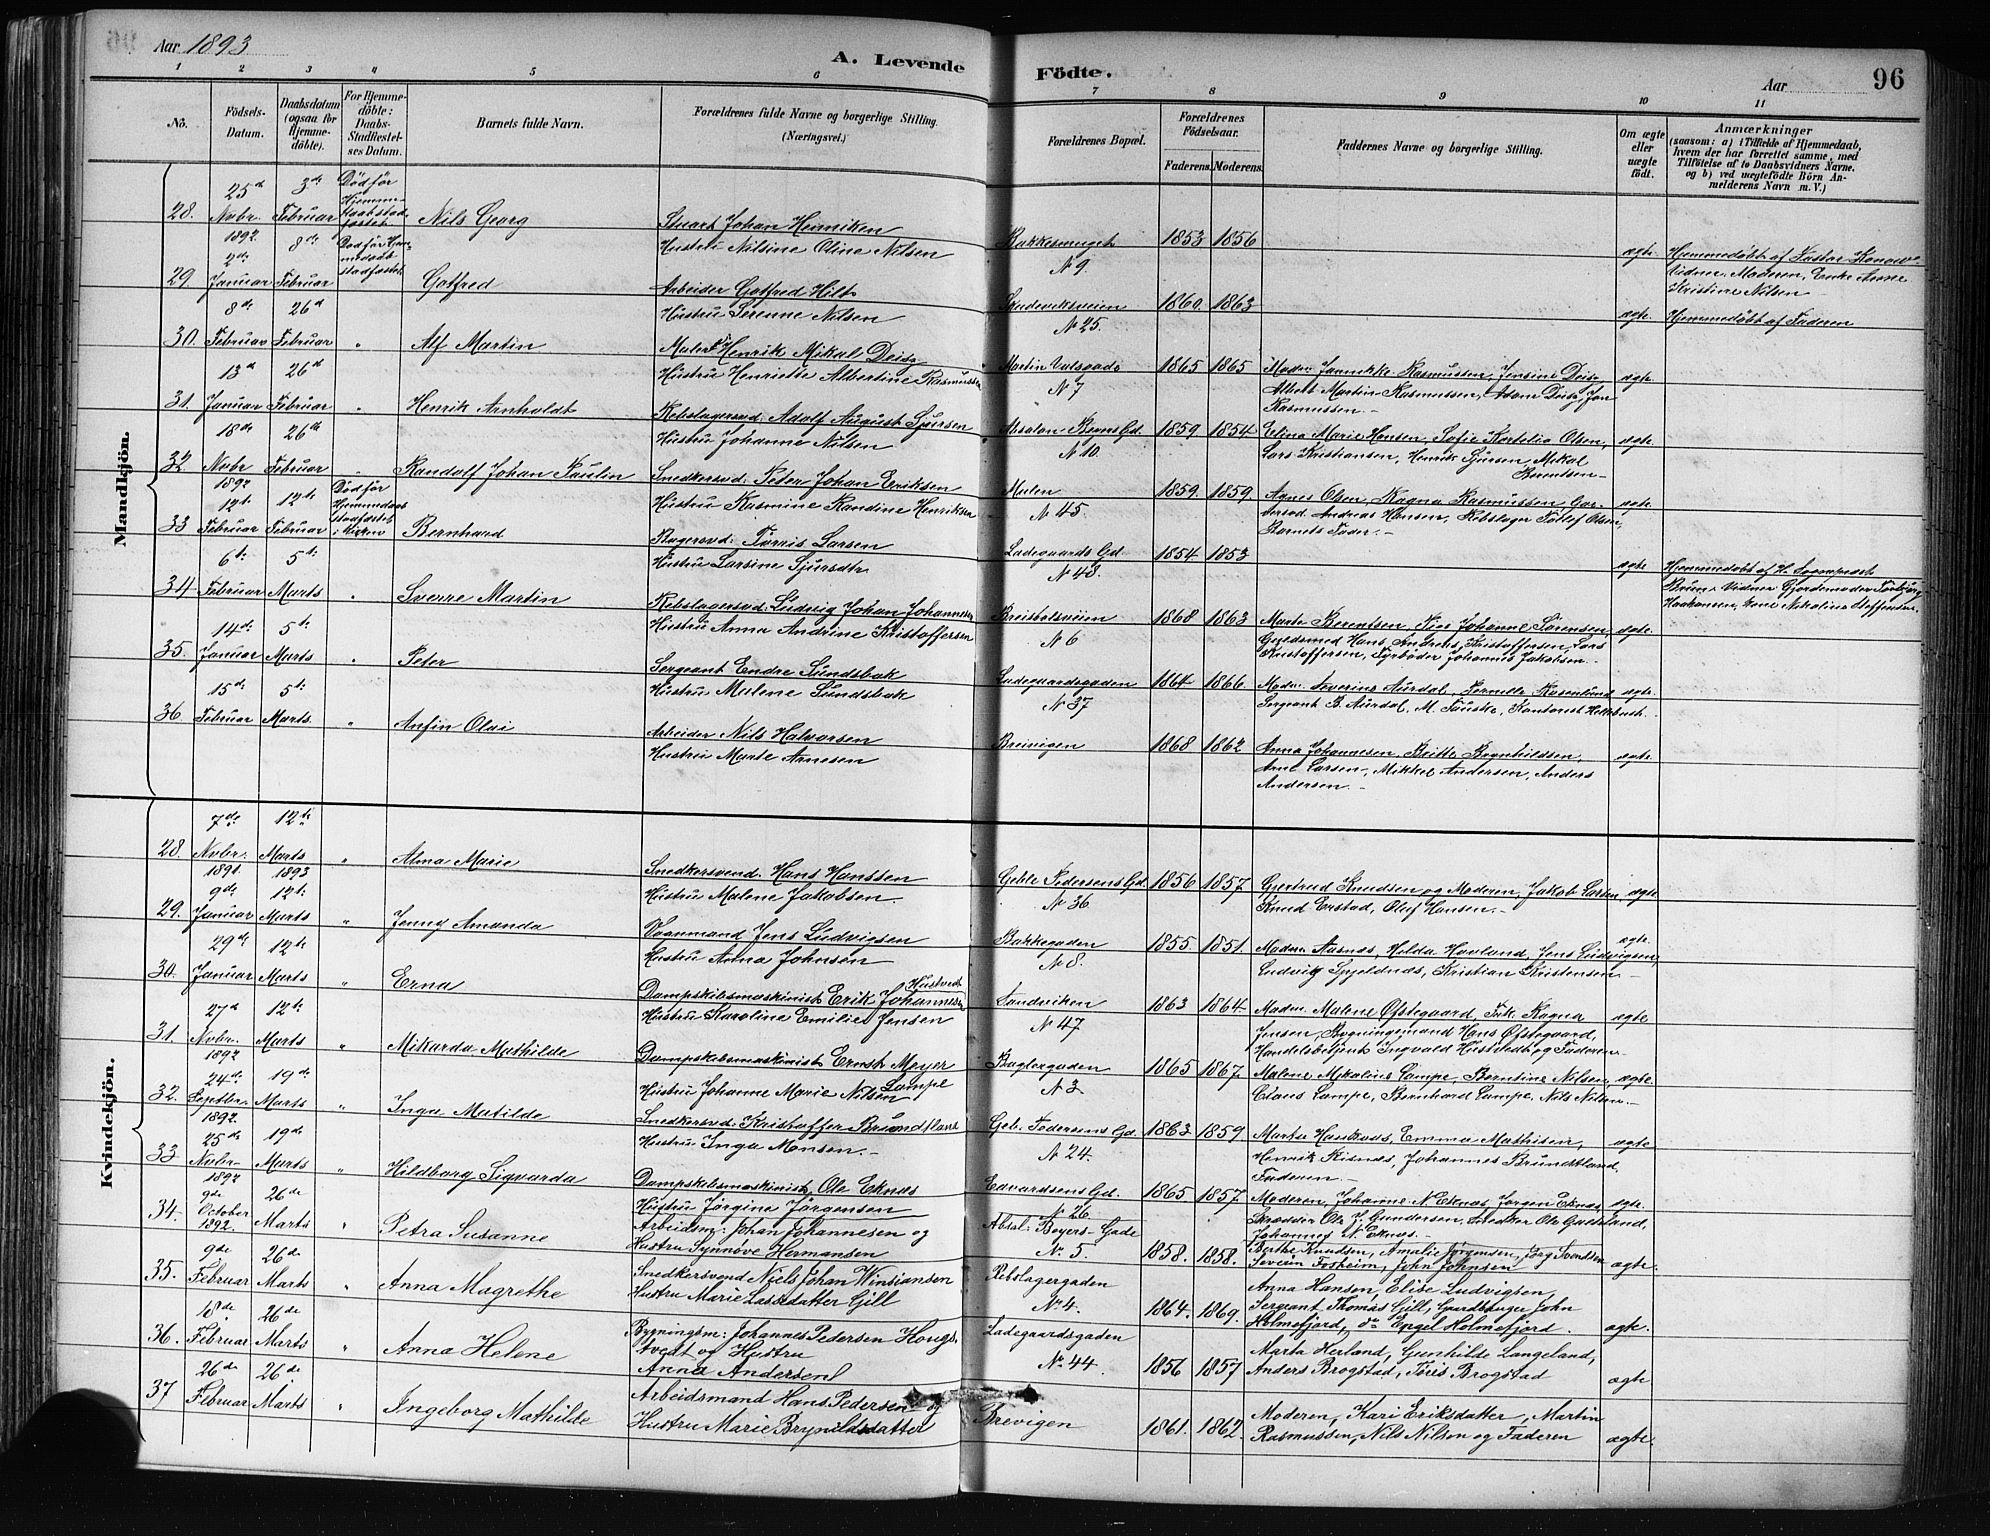 Aar 1893
A. Levende Födte.
Aar
96
1 2 3 4 5 6 7 8 9 10 11
No.
Födsels-Datum.
Daabsdatum (ogsaa for Hjemme-döbte).
For Hjemme-döbte: Daabs-Stadfæstel-ses Datum.
Barnets fulde Navn.
Forældrenes fulde Navne og borgerlige Stilling. (Næringsvei.)
Forældrenes Bopæl.
Forældrenes Födselsaar.
Faderens. Moderens.
Faddernes Navne og borgerlige Stilling.
Om ægte eller uægte födt.
Anmærkninger (saasom: a) i Tilfælde af Hjemmedaab, hvem der har forrettet samme, med Tilföielse af to Daabsvidners Navne. og b) ved uægtefödte Börn Anmelderens Navn m. V.)
Mandkjön.
28. 25d Novbr. 1892 3de Februar Död før Hjemme- Nils Georg
Stuart Johan Henriksen
Hustru Nilsine Oline Nilsen
Bakkesmuget N 9 1853 1856 ægte. Hjemmedøbt af Pastor
Vidner Moderen, Enke Anne Kristine Nilsen
29. 2de Januar 8de Februar Død før Hjemmedaab stadfæstet Gotfred
Arbeider Gotfred Hilt
Hustru Serenne Nilsen
Sandviksveien N 25. 1860. 1863 ægte. Hjemmedøbt af Faderen
30. 8de Februar 26d Februar " Alf Martin
Maler Henrik Mikal Deis
Hustru Henriette Albertine Rasmussen
Martin N 7 1865 1865 Madm Jannikke Rasmussen, Jensine Deis, Albert Martin Rasmussen, Adam Deis, Jan Rasmussen. ægte.
31. 13d Januar 26d Februar " Henrik Arnholdt
Rebslagersvd. Adolf August Sjursen
Hustru Johanne Nilsen
Absalon Beyers Gd. N 10. 1859. 1854 Elina Marie Hansen, Sofie Kornelia Olsen, Lars Kristiansen, Henrik Sjursen, Mikal Berentsen ægte.
32. 18de Novbr 1892 26de Februar Randolf Johan Paulin
Snedkersvd. Peter Johan Eriksen
Hustru Rasmine Randine Henriksen
Mulen N 45 1859. 1859 Agnes Olsen, Ragna Rasmussen, Garversvd. Andreas Hansen, Rebslager Olsen, Barnets Fader. ægte.
33 12te Februar 12te Februar Død før Hjemmedaab stadfæstet i Kirken Bernhard
Bagersvd. Tørris Larsen
Hustru Larsine Sjursdtr
Ladegaards Gd. N 43. 1854 1853 ægte Hjemmedøbt af
Vidner Gjordemoder
Haakonsen, Kone Nikoline Steffensen.
34 6te Februar 5te Marts " Sverre Martin
Rebslagersvd. Ludvig Johan Johannesen
Hustru Anna Andrine Kristoffersen
Breistølsveien N 6 1868 1863 Marta Berentsen, Pige Johanne Sørensen, Guldsmed Hans Andreas Kristoffersen, Lars Kristoffersen, Fyrbøder Johannes Jakobsen. ægte.
35. 14de Januar 5te Marts " Peter
Sergeant Endre Sundsbak
Hustru Malene Sundsbak
Ladegaardsgaden N 37 1864 1866 Madm. Severine Aurdal, Pernille Rosenlund, Sergeant B. Aurdal, M. Fauske, Kontorist ægte.
36. 15de Februar 5te Marts. " Anfin Olai
Arbeider Nils Halvorsen
Hustru Marte Arnesen
Breivigen 1868 1862 Anna Johannesen, Britte Brynhildsen, Arne Larsen, Mikkel Andersen, Anders Andersen. ægte
Kvindekjön.
28. 7de Novbr. 1891. 12te Marts 1893 " Alma Marie
Snedkersvend. Hans Hanssen
Hustru Malene Jakobsen
Geble Pedersens Gd. N 36 1856 1857 Gjertrud Knudsen og Moderen, Jakob Larsen, Knud Erstad, Oluf Hansen. ægte
29. 9de Januar 12te Marts " Jenny Amanda
Vognmand Jens Ludvigsen
Hustru Anna Johnsen
Bakkegaden N 8. 1855. 1851. Madm. Aasnæs, Hilda Havland, Jens Ludvigsen, Ludvig Gjeldnæs, Kristian Kristensen ægte.
30. 29de Januar 12te Marts " Erna
Dampskibsmaskinist Erik Johannesen Hustvedt
Hustru Karoline Emilie Jensen
Sandviken N 47 1863 1864 Madm. Malene Øfstegaard, Frk. Ragna Jensen, Bygningsmand Hans Øfstegaard, Handelsbetjent Ingvald Hustvedt og Faderen ægte
31. 27d Novbr. 1892 12te Marts " Mikarda Mathilde
Dampskibsmaskinist Ernst Meyer Lampe
Hustru Johanne Marie Nilsen
Baglergaden N 3 1865 1867 Malene Mikaline Lampe, Berntine Nilsen, Claus Lampe, Bernhard Lampe, Nils Nilsen. ægte.
32. 24de Septbr. 1892. 19de Marts " Inga Matilde
Snedkersvd. Kristoffer Brundtland
Hustru Inga Monsen.
Geb. Pedersens Gd. N 24. 1863 1859 Marta Haukaas, Emma Mathisen, Henrik Risnæs, Johannes Brundtland, Faderen. ægte
33 25de Novbr 1892 19de Marts " Hildborg Sigvarda
Dampskibsmaskinist Ole Eknæs
Hustru Jørgina Jørgensen
Edvardsens Gd. N 26 1865 1857. Moderen, Johanne N. Eknæs, Jørgen Eknæs, Skrædder Ole J. Gundersen, Snedker Ole Johannes N. Eknæs. ægte.
34. 9de October 1892. 26de Marts " Petra Susanne
Arbeidsm: Johan Johannesen og
Hustru Synnøve Hermansen
Absal: Beyers- Gade No. 5. 1858. 1858. Berthe Knudsen, Amalie Jørgensen, Jørg Svendsen Severin Fosheim, John Johnsen ægte.
35. 9de Februar 26de Marts " Anna Magrethe
Snedkersvend Niels Johan Winsiansen
Hustru Marie Lassedatter Gill
Rebslagergaden No 4. 1864. 1869. Anna Hansen, Elise Ludvigsen, Sergeant Thomas Gill, Gaardbruger John Holmefjord, do Engel Holmefjord. ægte.
36. 18de Februar 26de Marts " Anna Helene
Bygningsm: Johannes Pedersen Haugstvedt og Hustru
Anna Andersen
Ladegaardsgaden No 44. 1856 1857 Marta Herland, Gunhilde Langeland, Anders Brogstad, Tóris Brogstad ægte
37 26de Februar 26de Marts " Ingeborg Mathilde
Arbeidsmand Hans Pedersen og
Hustru Marie Brynildsdatter
Brevigen 1861. 1862 Moderen, Kari Eriksdatter, Martin Rasmussen, Nils Nilsen og Faderen ægte.